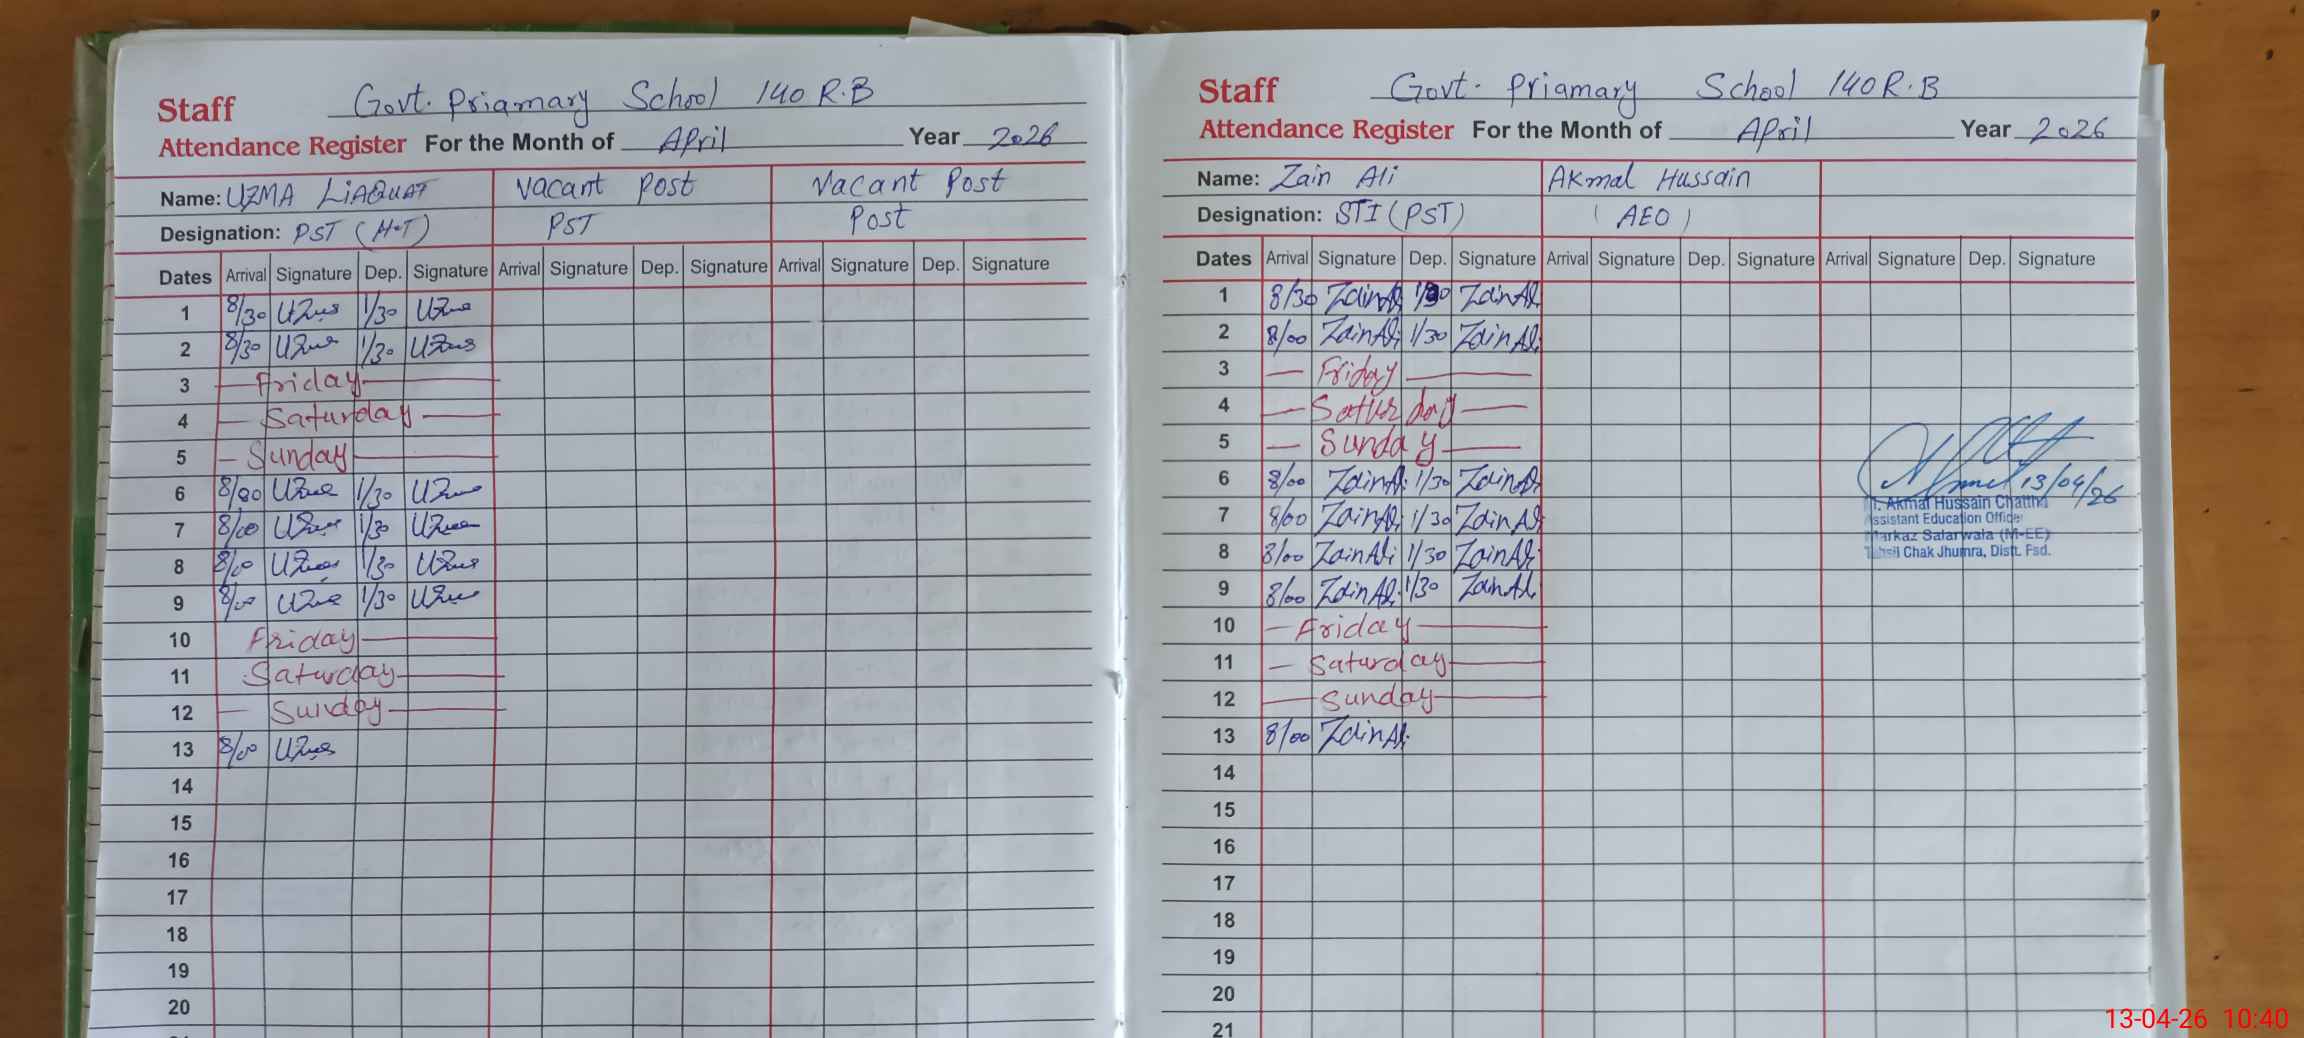 Staff Govt. Priamary School 140 R.B
Attendance Register For the Month of April Year 2026
Name: UZMA LIAQUAT Vacant Post Vacant Post
Designation: PST (H.T) PST Post
Dates Arrival Signature Dep. Signature Arrival Signature Dep. Signature Arrival Signature Dep. Signature
1 8/30 Uzma 1/30 Uzma
2 8/30 Uzma 1/30 Uzma
3 Friday
4 Saturday
5 Sunday
6 8/00 Uzma 1/30 Uzma
7 8/00 Uzma 1/30 Uzma
8 8/00 Uzma 1/30 Uzma
9 8/00 Uzma 1/30 Uzma
10 Friday
11 Saturday
12 Sunday
13 8/00 Uzma
14
15
16
17
18
19
20
Staff Govt. Priamary School 140 R.B
Attendance Register For the Month of April Year 2026
Name: Zain Ali Akmal Hussain
Designation: STI (PST) (AEO)
Dates Arrival Signature Dep. Signature Arrival Signature Dep. Signature Arrival Signature Dep. Signature
1 8/30 Zain Ali 1/30 Zain Ali
2 8/00 Zain Ali 1/30 Zain Ali
3 Friday
4 Saturday
5 Sunday
6 8/00 Zain Ali 1/30 Zain Ali
7 8/00 Zain Ali 1/30 Zain Ali
8 8/00 Zain Ali 1/30 Zain Ali
9 8/00 Zain Ali 1/30 Zain Ali
10 Friday
11 Saturday
12 Sunday
13 8/00 Zain Ali
14
15
16
17
18
19
20
21
13/04/26
Akmal Hussain Chattha
Assistant Education Officer
Markaz Salarwala (M-EE)
Tehsil Chak Jhumra, Distt. Fsd.
13-04-26 10:40